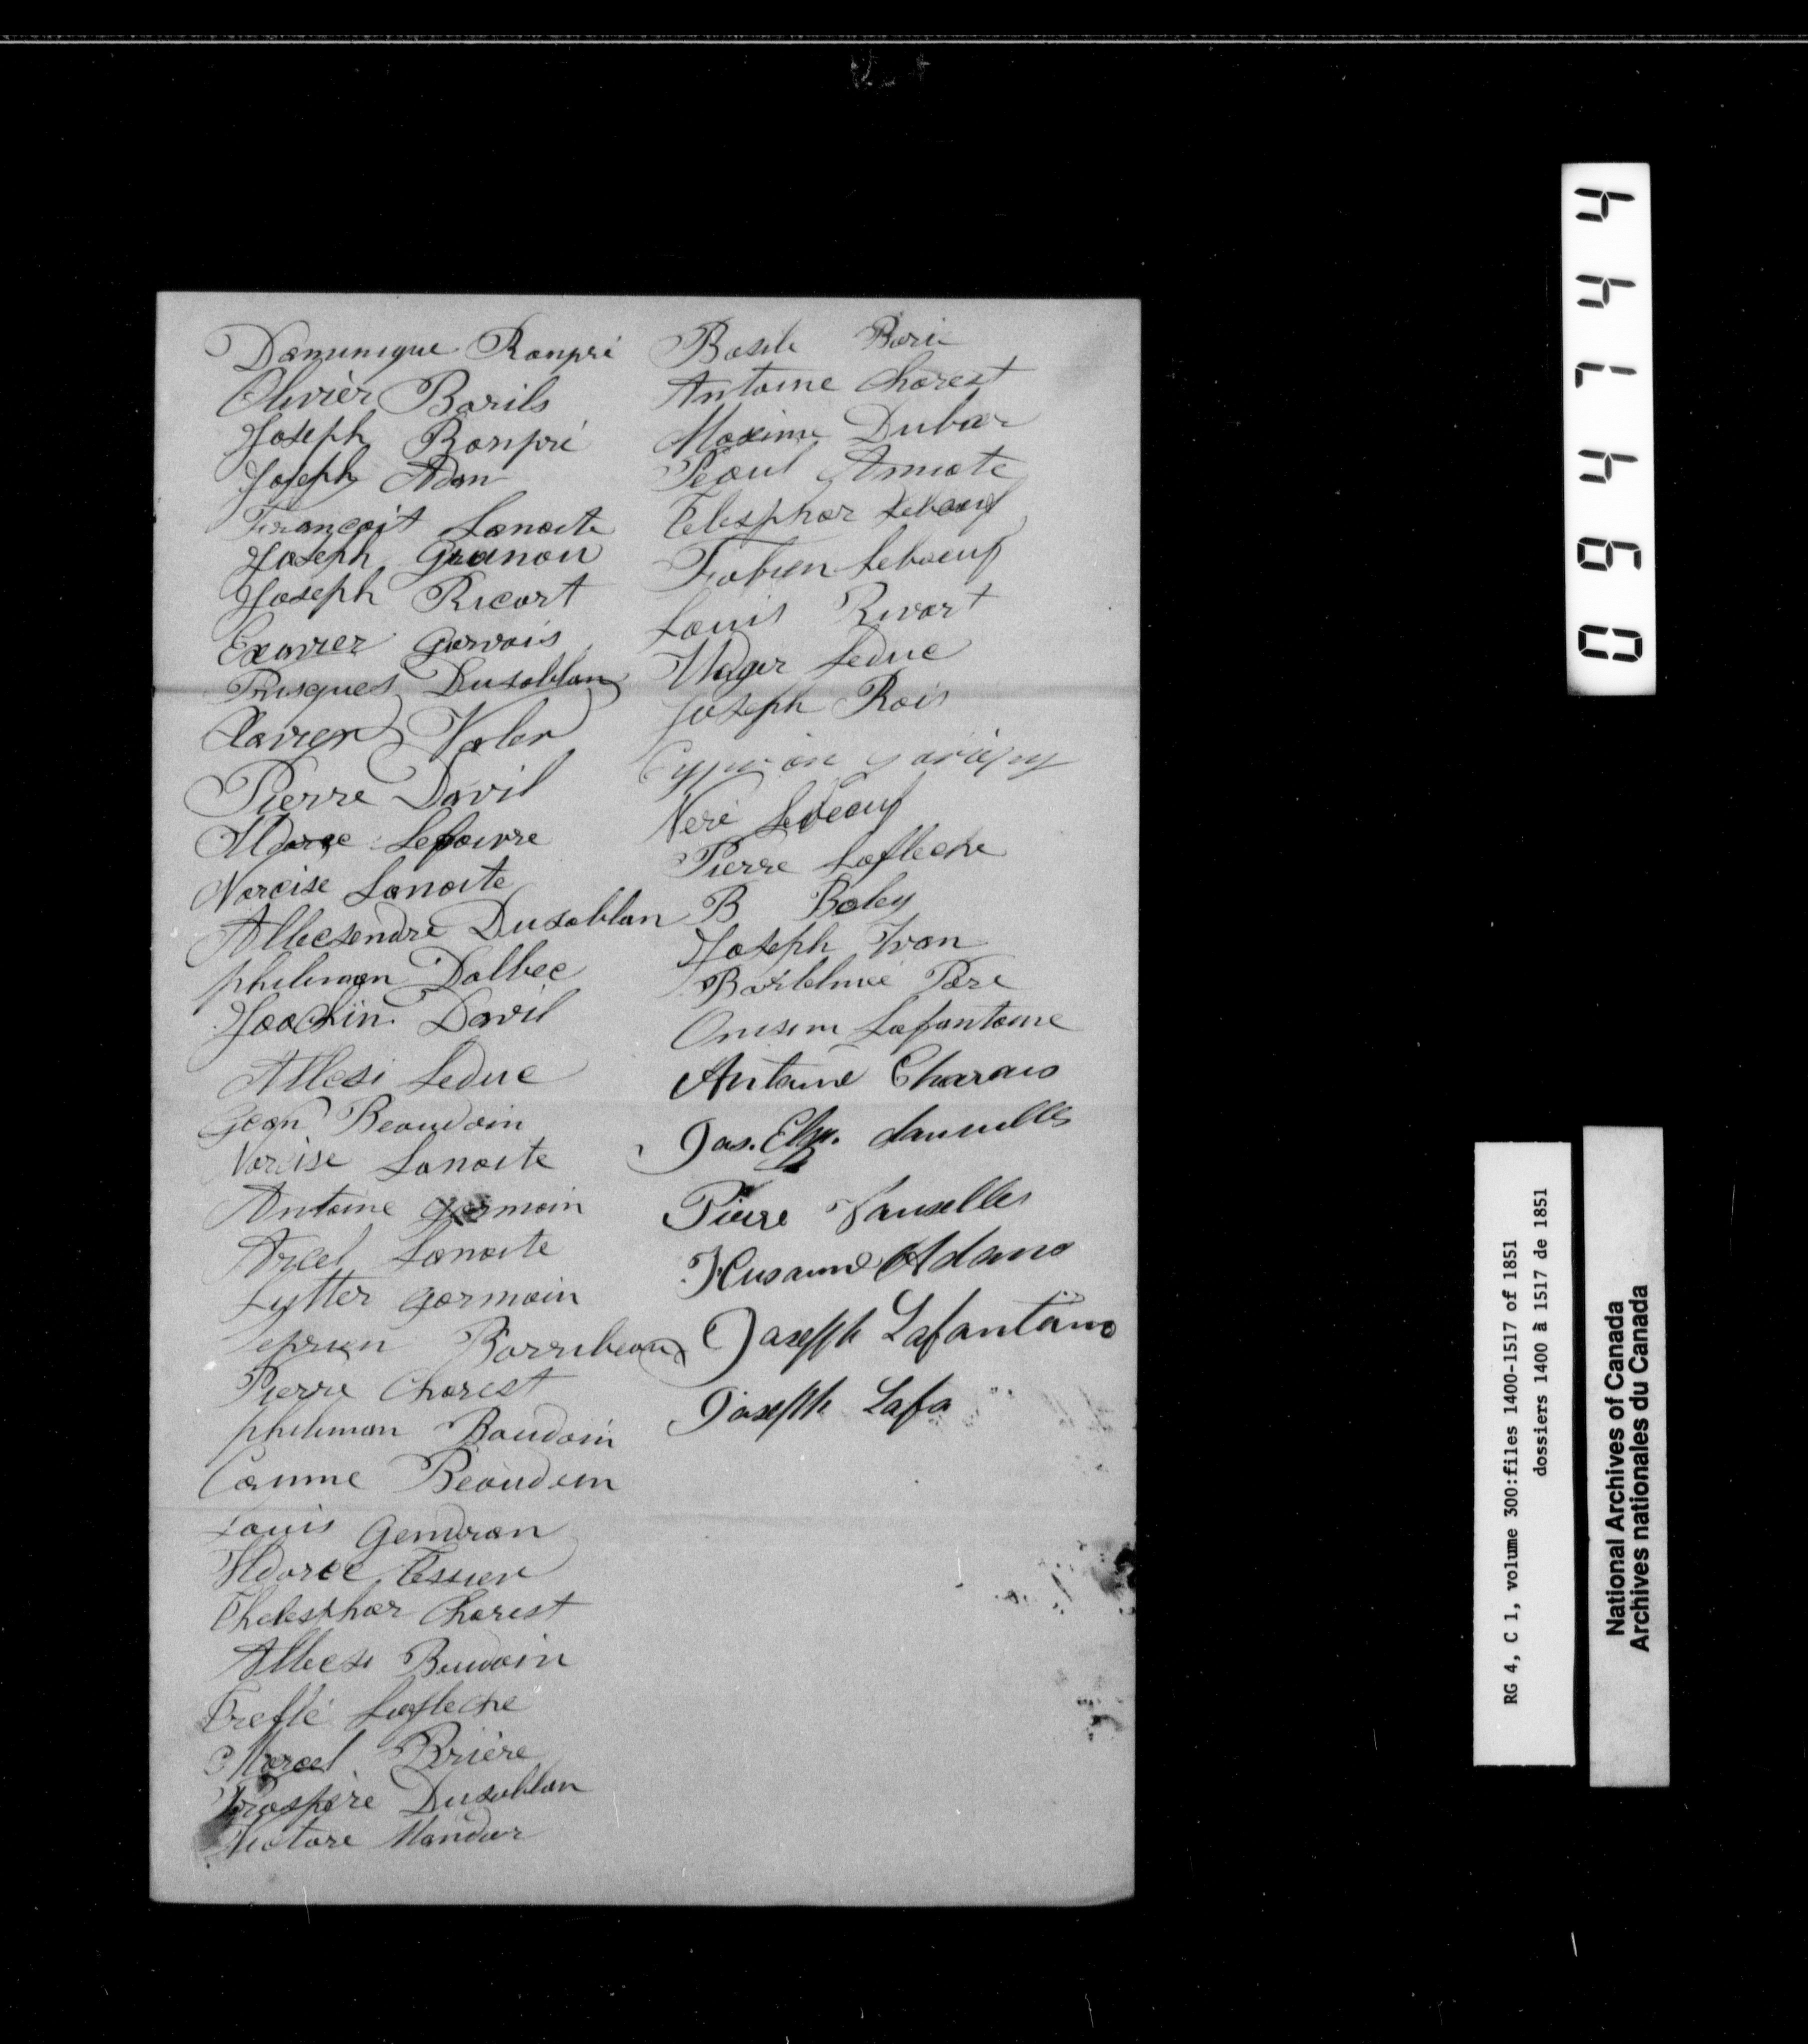 Domunique Ronpré
Olivièr Borils
Joseph Bonpré
Joseph Adan
Françoit Lanoite
Joseph Grenon
Joseph Ricort
Exavier Gervais
Prisques Dusablan
Xavier Valer
Pierre David
Lefaivre
Narcise Lanoite
Allecsendre Dusablan
philimon Dalbec
Joachin David
Allesi Leduc
Jean Beaudoin
Narcise Lanoite
Antoine Germain
Arcel Lanoite
Lytter Germain
seprien Barribeau
Pierre Charest
philimon Baudoin
Beaudoin
Louis Gendron
Tessier
Thelesphor Charest
Allecsi Beudoin
Trefflé Lafleche
Marcel Brière
Prospère Dusablan
Victore
Basile Bari
Antoine Charest
Maxime Dubor
Peaul Amiote
Telesphor Leboeuf
Fabien Leboeuf
Louis Rivart
Udger Leduc
Joseph Rois
Neré Lebeouf
Pierre Lafleche
B Boley
Joseph Ivon
Bartelmie Pare
Onisim Lafontaine
Antoine Charais
Jos. Elz.
Pierre
Adams
Joseph Lafantano
Joseph Lafa
094744
RG 4, C 1, volume 300:files 1400-1517 of 1851
dossiers 1400 à 1517 de 1851
National Archives of Canada
Archives nationales du Canada